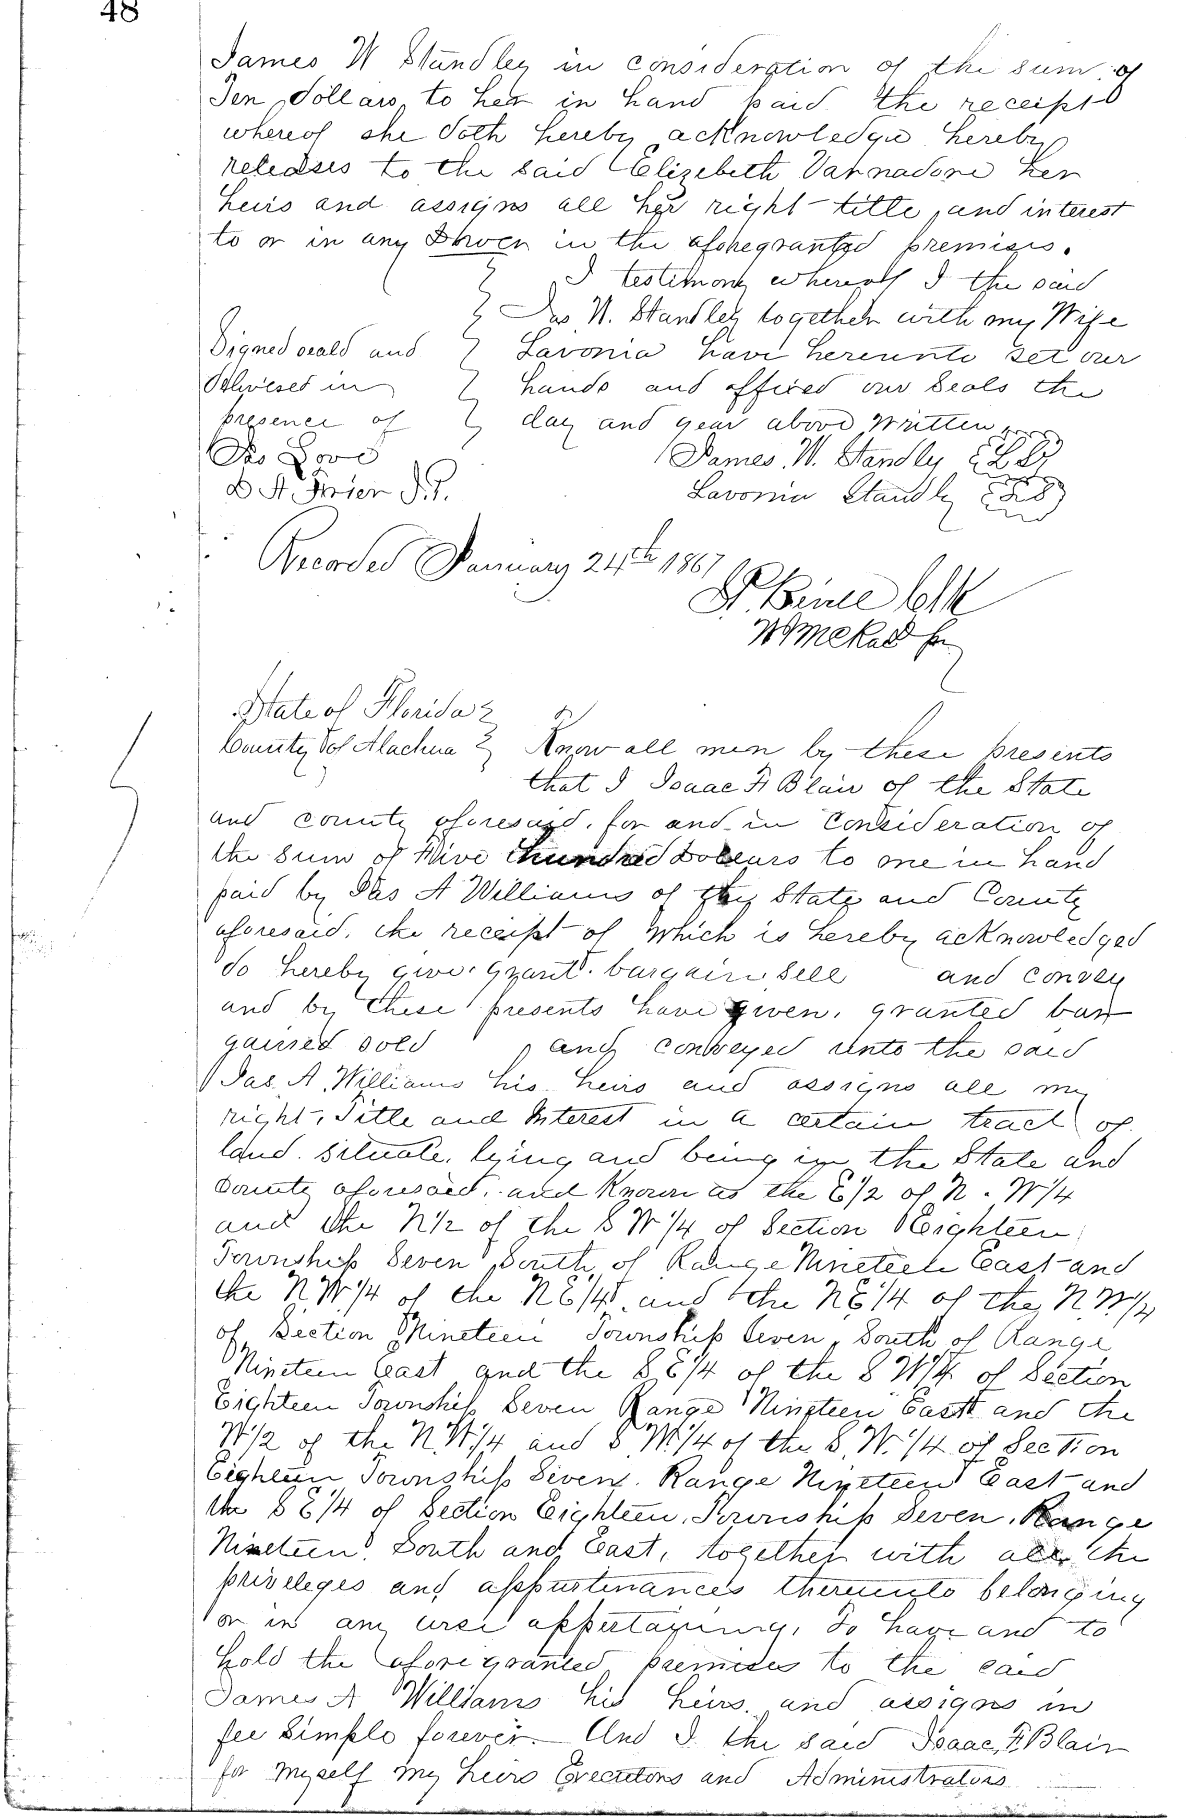 48
James W Standley in consideration of the sum of
Ten dollars to her in hand paid the receipt
whereof she doth hereby acknowledge hereby
releases to the said Elizebeth Varnadore her
heirs and assigns all her right title and interest
to or in any Dower in the aforegranted premises.
I testimony whereof I the said
Jas W. Standley together with my Wife
Signed seald and Lavonia have hereunto set our
delivered in hands and affixed our Seals the
presence of day and year above Written
Jas Love James. W. Standly LS
D A Frier J.P. Lavonia Standly LS
Recorded January 24th 1867
Clk
State of Florida
County of Alachua Know all men by these presents
that I Isaac F Blair of the State
and county aforesaid. for and in Consideration of
the Sum of Five hundred Dollars to me in hand
paid by Jas A Williams of the State and County
aforesaid. the receipt of which is hereby acknowledged
do hereby give. grant. bargain. Sell and convey
and by these presents have given. granted bar
gained sold and conveyed unto the said
Jas. A. Williams his heirs and assigns all my
right, Title and Interest in a certain tract of
land. situate. lying and being in the State and
County aforesaid. and Known as the E 1/2 of N. W 1/4
and the N 1/2 of the S W 1/4 of Section Eighteen
Township Seven South of Range Nineteen East and
the N. W. 1/4 of the N E 1/4. and the N E 1/4 of the N. W 1/4
of Section Nineteen Township Seven. South of Range
Nineteen East and the S. E 1/4 of the S W 1/4 of Section
Eighteen Township Seven Range Nineteen East and the
W 1/2 of the N. W. 1/4 and S. W. 1/4 of the S. W. 1/4 of Section
Eighteen Township Seven. Range Nineteen East and
the S E 1/4 of Section Eighteen, Township Seven. Range
Nineteen. South and East, together with all the
priveleges and appurtinances thereunto belonging
or in any wise appertaining, To have and to
hold the aforegranted premises to the said
James A Williams his heirs. and assigns in
fee Simple forever. And I the said Isaac, F. Blair
for myself my heirs Executors and Administrators